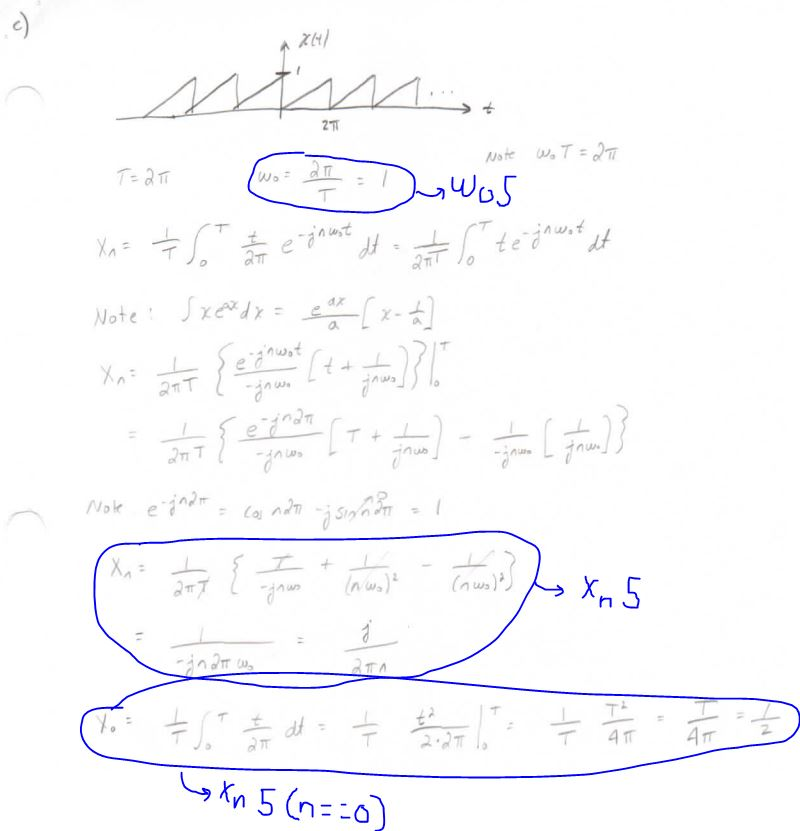 c)
x(t)
1
...
t
2π
Note ω₀T = 2π
T = 2π ω₀ = 2π/T = 1 → ω₀5
Xₙ = 1/T ∫₀ᵀ t/2π e^(-jnω₀t) dt = 1/2πT ∫₀ᵀ t e^(-jnω₀t) dt
Note: ∫xe^(ax)dx = e^(ax)/a [x - 1/a]
Xₙ = 1/2πT { e^(-jnω₀t)/-jnω₀ [t + 1/jnω₀] }|₀ᵀ
= 1/2πT { e^(-jn2π)/-jnω₀ [T + 1/jnω₀] - 1/-jnω₀ [1/jnω₀] }
Note e^(-jn2π) = cos n2π - j sin n2π = 1
Xₙ = 1/2πT { T/-jnω₀ + 1/(nω₀)² - 1/(nω₀)² } → xₙ5
= 1/-jn2πω₀ = j/2πn
X₀ = 1/T ∫₀ᵀ t/2π dt = 1/T t²/2·2π |₀ᵀ = 1/T T²/4π = T/4π = 1/2
→ xₙ5 (n==0)